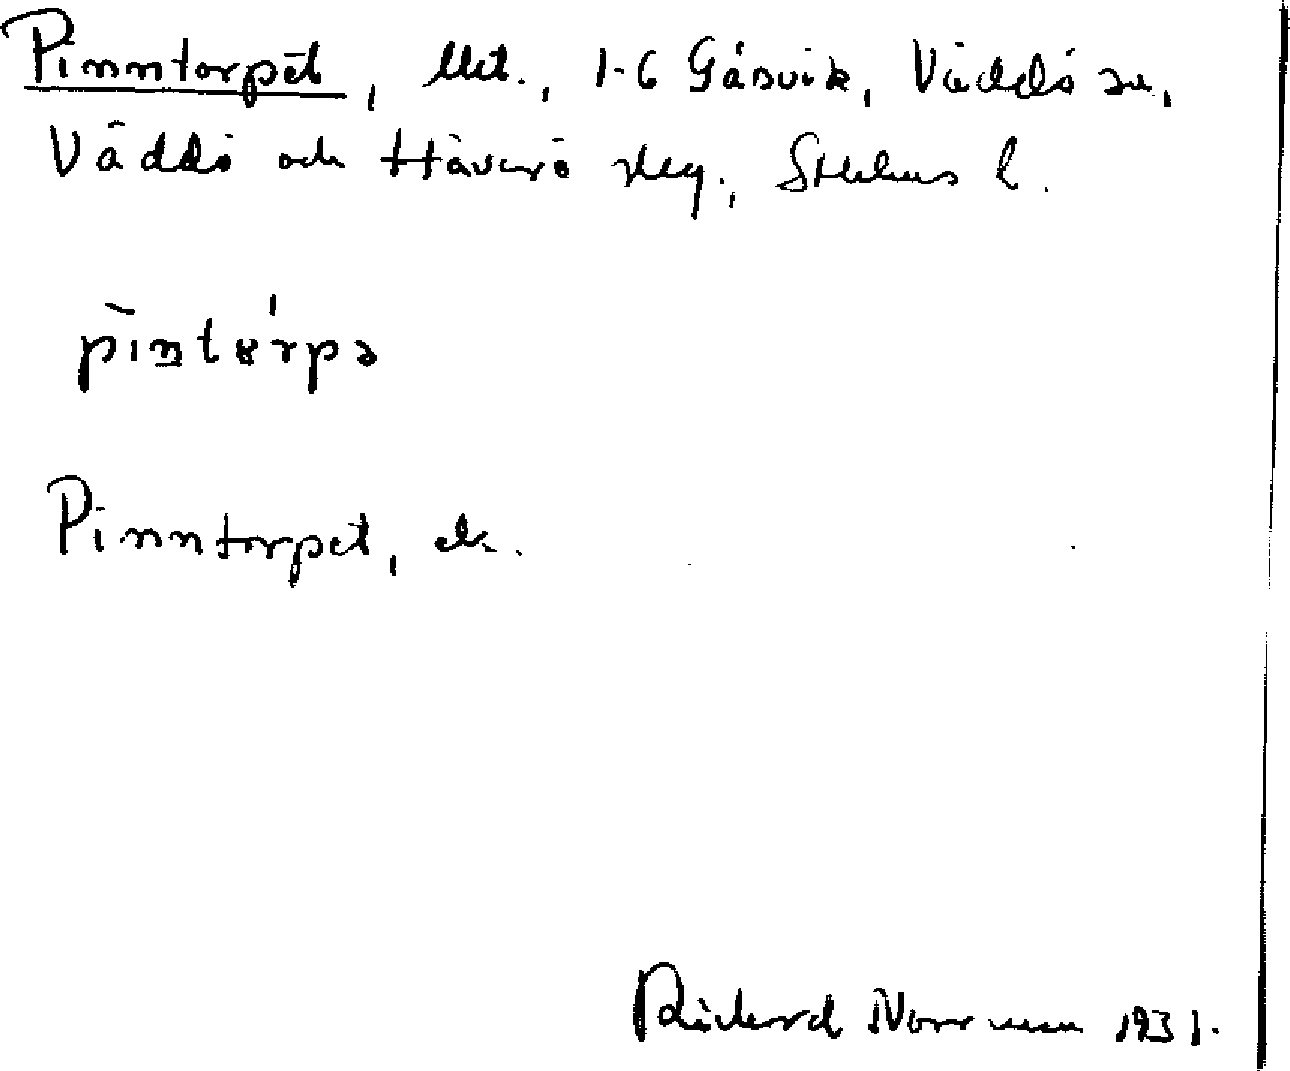 Pinntorpet, lht., 1-6 Gåsvik, Väddö sn,
Väddö och Häverö skg., Sthlms l.
pìntɤ́rpə
Pinntorpet, ek.
Rickard Norrman 1931.